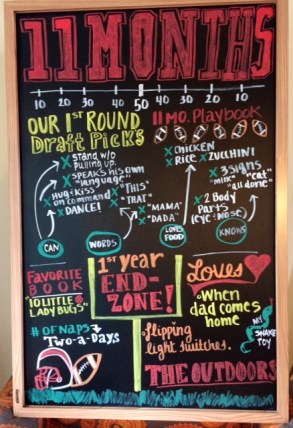 11 MONTHS
10 20 30 40 50 40 30 20 10
OUR 1ST ROUND
Draft Picks
11 MO. Playbook
X Stand w/o
pulling up
X SPEAKS his own
"language"
X Hug + Kiss
on command
X DANCE!
X "THIS"
X "THAT"
X "MAMA"
X "DADA"
X CHICKEN
X RICE X ZUCCHINI
X 3 SIGNS
"milk" "eat"
"all done"
X 2 Body
Parts
(eye + Nose)
CAN
WORDS
LOVES
FOOD
KNOWS
FAVORITE
BOOK
"10 LITTLE
LADY BUGS"
# OF NAPS
Two-a-Days
1st year
END-
ZONE!
Loves
When dad comes
home
MY
SNAKE
TOY
flipping
light switches.
THE OUTDOORS